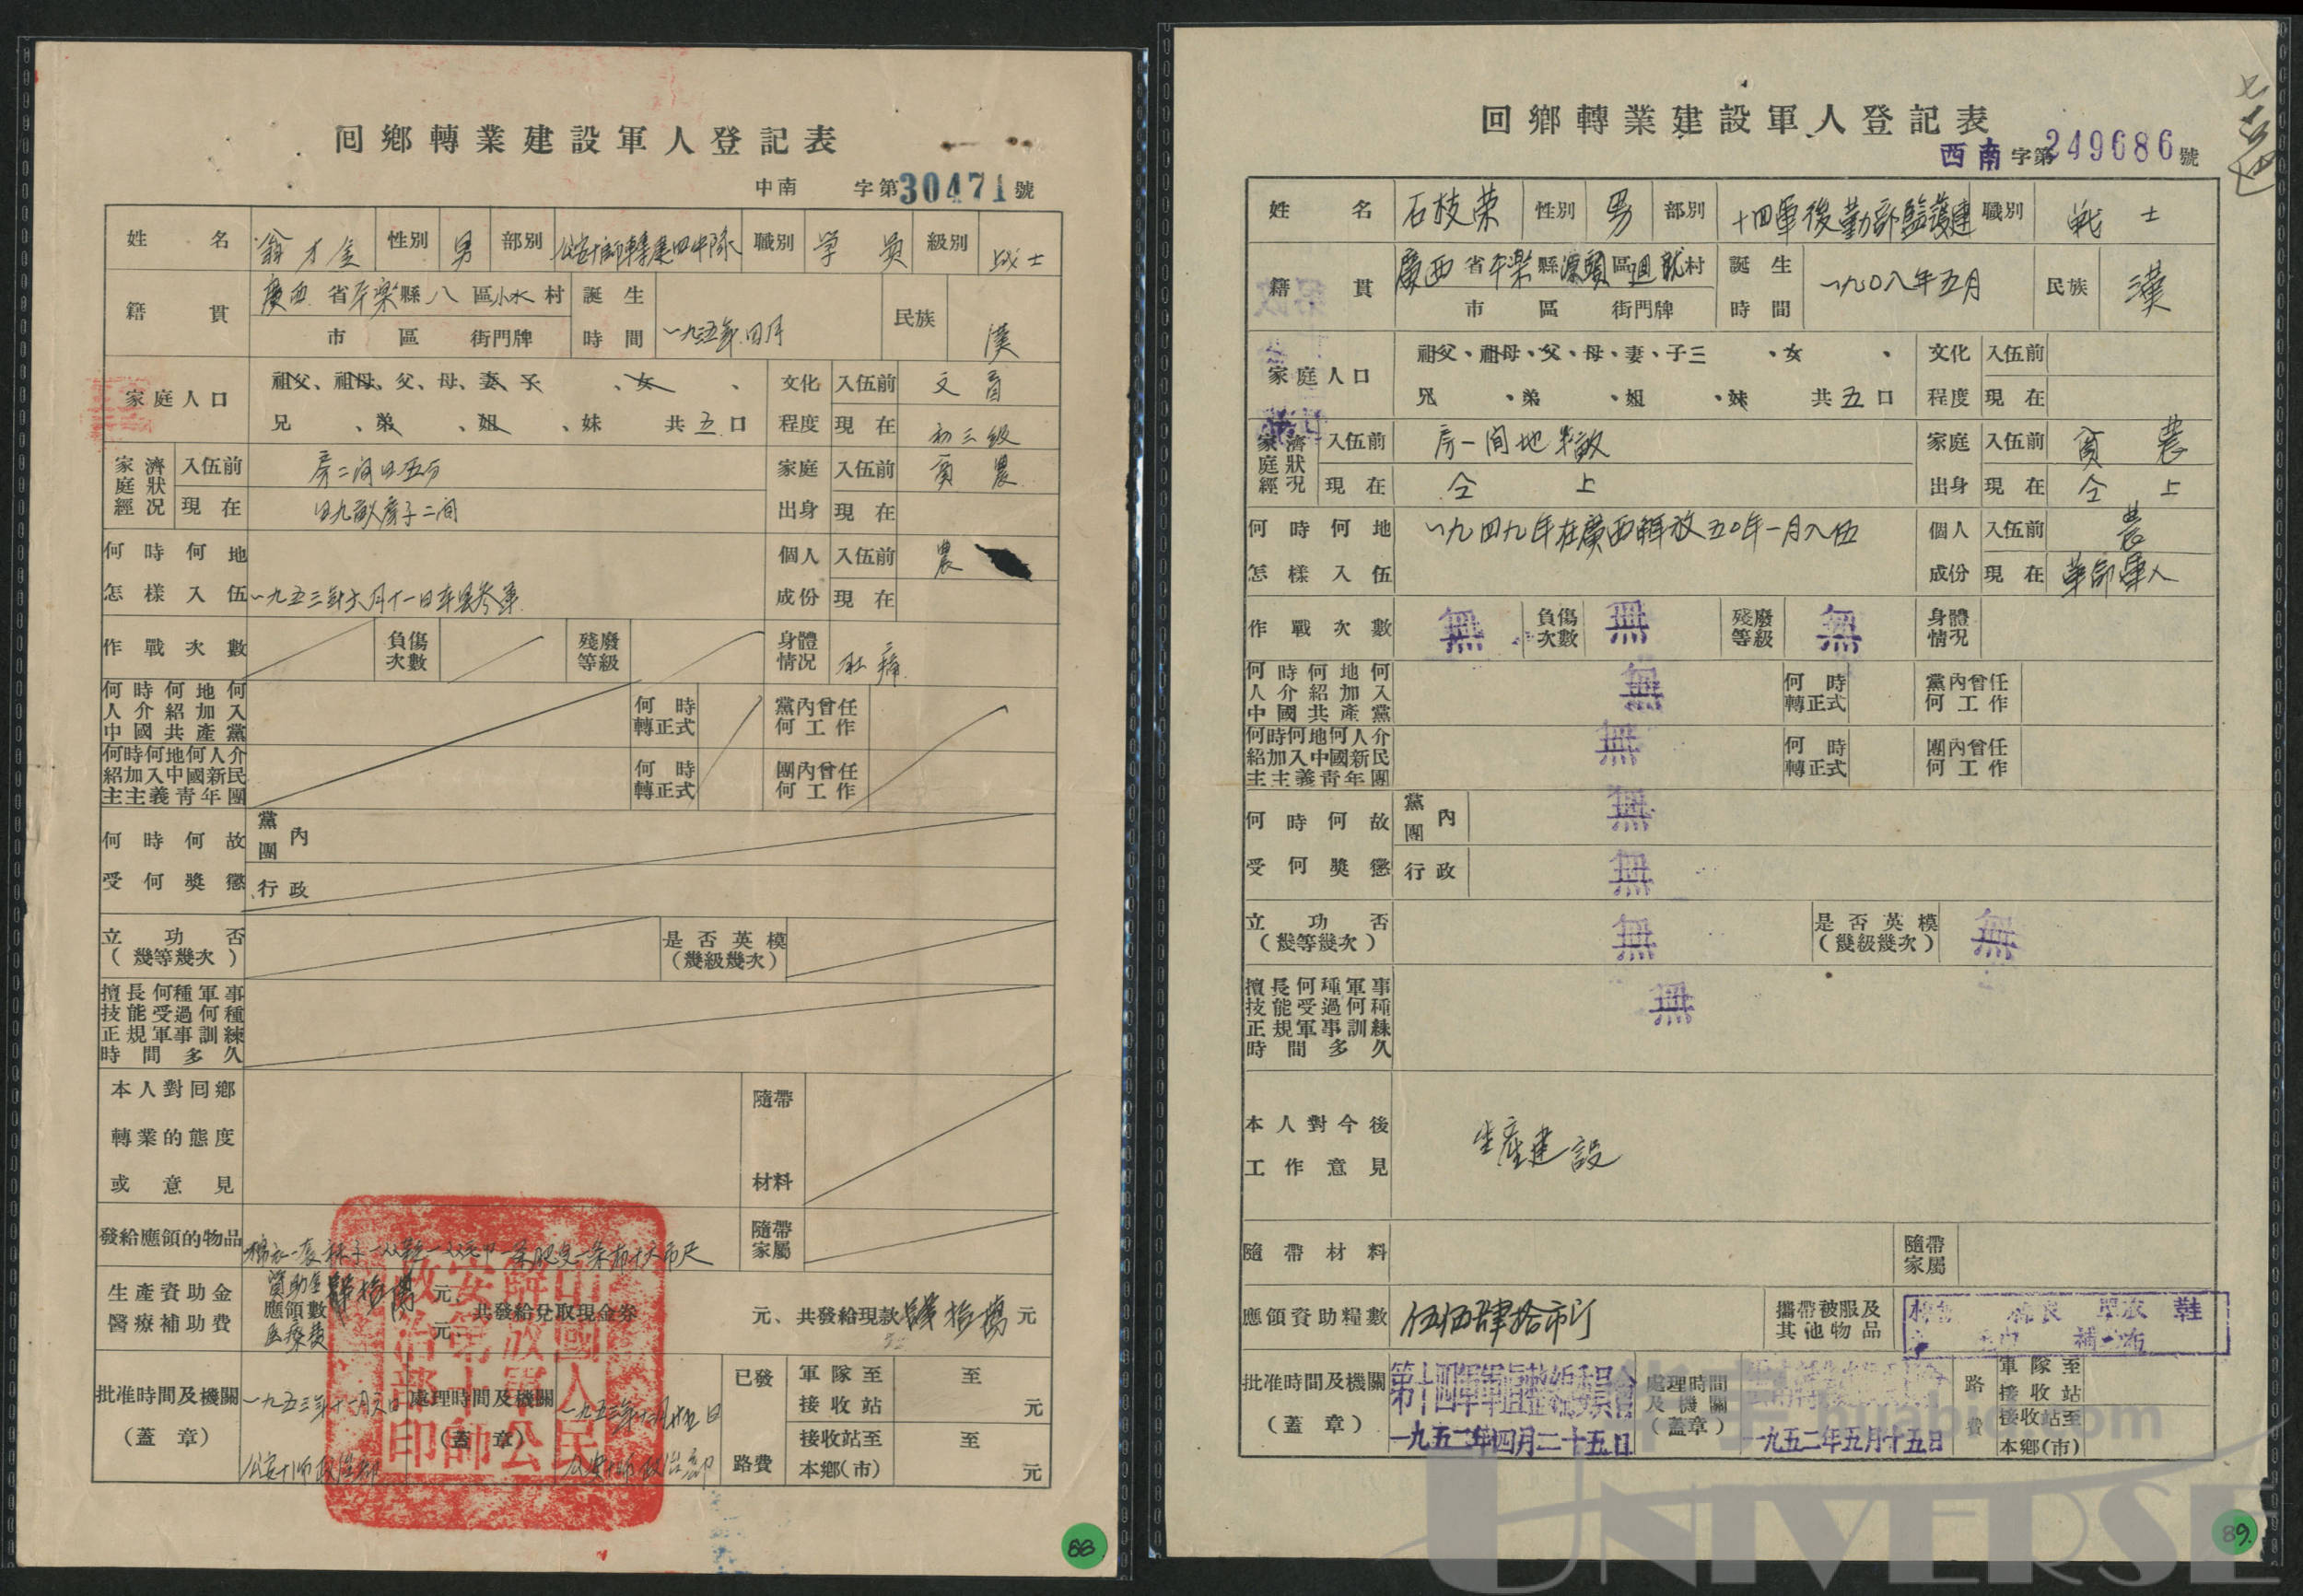 回鄉轉業建設軍人登記表
中南 字第30471號
姓名 翁才金 性別 男 部別 公安十師轉建四中隊 職別 學員 級別 战士
籍貫 廣西省平樂縣八區小水村 誕生時間 一九三五年四月 民族 漢
市 區 街門牌
家庭人口 祖父、祖母、父、母、妻、子 、女 、
兄 、弟 、姐 、妹 共五口
文化程度 入伍前 文盲
現在 初三級
家庭經濟狀況 入伍前 房二间田五分
現在 田九畝房子二间
家庭出身 入伍前 貧農
現在
何時何地怎樣入伍 一九五三年六月十一日平樂參軍
個人成份 入伍前 農
現在
作戰次數 負傷次數 殘廢等級 身體情況
何時何地何人介紹加入中國共產黨 何時轉正式 黨內曾任何工作
何時何地何人介紹加入中國新民主主義青年團 何時轉正式 團內曾任何工作
何時何故受何獎懲 黨團內
行政
立功否(幾等幾次) 是否英模(幾級幾次)
擅長何種軍事技能受過何種正規軍事訓練時間多久
本人對回鄉轉業的態度或意見 隨帶材料
發給應領的物品 棉衣一套 隨帶家屬
生產資助金醫療補助費 資助金應領數医療費 肆拾萬元 元 共發給兌取現金券 元、共發給現款肆拾萬元
批准時間及機關(蓋章) 公安十師政治部
處理時間及機關(蓋章) 公安十師政治部
已發路費 軍隊至接收站 至 元
接收站至本鄉(市) 至 元
中國人民解放軍公安第十師政治部印
88
回鄉轉業建設軍人登記表
西南字第249686號
姓名 石枝荣 性別 男 部別 十四軍後勤部監護連 職別 戰士
籍貫 廣西省平樂縣源頭區迴龍村 誕生時間 一九〇八年五月 民族 漢
市 區 街門牌
家庭人口 祖父、祖母、父、母、妻、子三 、女 、
兄 、弟 、姐 、妹 共五口
文化程度 入伍前
現在
家庭經濟狀況 入伍前 房一间地半畝
現在 仝上
家庭出身 入伍前 貧農
現在 仝上
何時何地怎樣入伍 一九四九年在廣西解放五〇年一月入伍
個人成份 入伍前 農
現在 革命軍人
作戰次數 無 負傷次數 無 殘廢等級 無 身體情況
何時何地何人介紹加入中國共產黨 無 何時轉正式 黨內曾任何工作
何時何地何人介紹加入中國新民主主義青年團 無 何時轉正式 團內曾任何工作
何時何故受何獎懲 黨團內 無
行政 無
立功否(幾等幾次) 無 是否英模(幾級幾次) 無
擅長何種軍事技能受過何種正規軍事訓練時間多久 無
本人對今後工作意見 生產建設
隨帶材料 隨帶家屬
應領資助糧數 伍佰肆拾市斤 攜帶被服及其他物品 鞋
批准時間及機關(蓋章) 第十四軍軍直整編委員會 一九五二年四月二十五日
處理時間及機關(蓋章) 一九五二年五月十五日
路費 軍隊至接收站
接收站至本鄉(市)
華宇 huabid.com
UNIVERSE
89